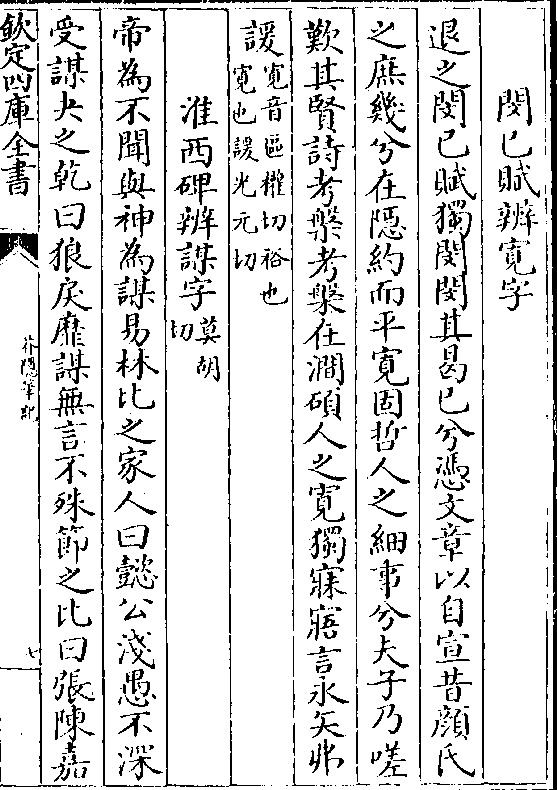 閔已賦辨寛字
退之閔已賦獨閔閔其曷已兮憑文章以自宣昔顔氏
之庶幾兮在隱約而平寛固哲人之細事兮夫子乃嗟
歎其賢詩考槃考槃在澗碩人之寛獨寐寤言永矢弗
諼寛音區權切裕也寛也諼光元切
淮西碑辨謀字莫胡切
帝為不聞與神為謀易林比之家人曰懿公淺愚不深
受謀夬之乾曰狼戾靡謀無言不殊節之比曰張陳嘉
欽定四庫全書
芥隱筆記
七